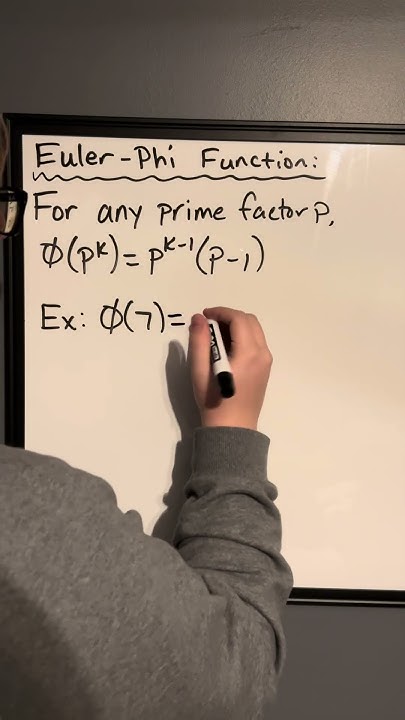 Euler-Phi Function:
For any prime factor p,
φ(p^k) = p^{k-1}(p-1)
Ex: φ(7) =